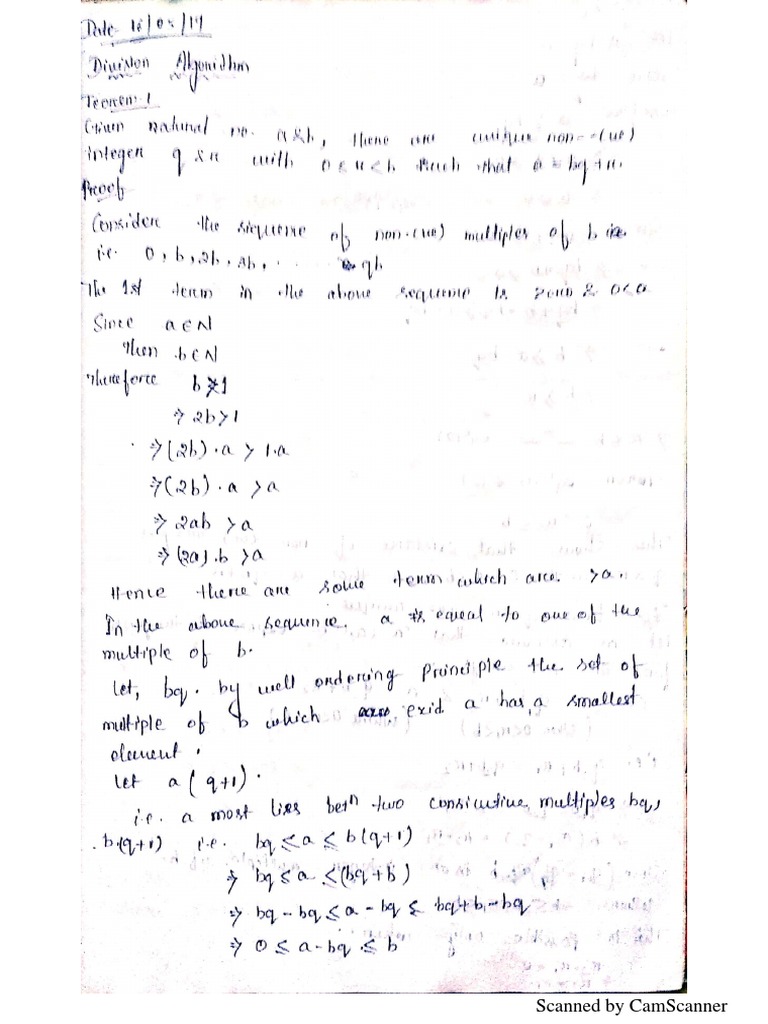 Date- 16/0 /19
Division Algorithm
Teorem-1
Given natural no. a & b, there are unique non-(ve)
integer q & r with 0 ≤ r < b such that a = bq+r.
Proof
Consider the sequence of non-(ve) multiples of b
i.e. 0, b, 2b, 3b, . . . . . qb
The 1st term in the above sequence is zero & 0<a
Since a ∈ N
Then b ∈ N
Therefore b ≥ 1
⇒ 2b > 1
⇒ (2b) . a > 1.a
⇒ (2b) . a > a
⇒ 2ab > a
⇒ (2a) . b > a
Hence there are some term which are > a.
In the above sequence. a is equal to one of the
multiple of b.
let, bq. by well ordering Principle the set of
multiple of b which exid a has a smallest
element.
let a ( q+1) .
i.e. a most lies betn two consicutive multiples bq,
b.(q+1) i.e. bq ≤ a ≤ b(q+1)
⇒ bq ≤ a ≤ (bq + b)
⇒ bq - bq ≤ a - bq ≤ bq + b - bq
⇒ 0 ≤ a - bq ≤ b
Scanned by CamScanner